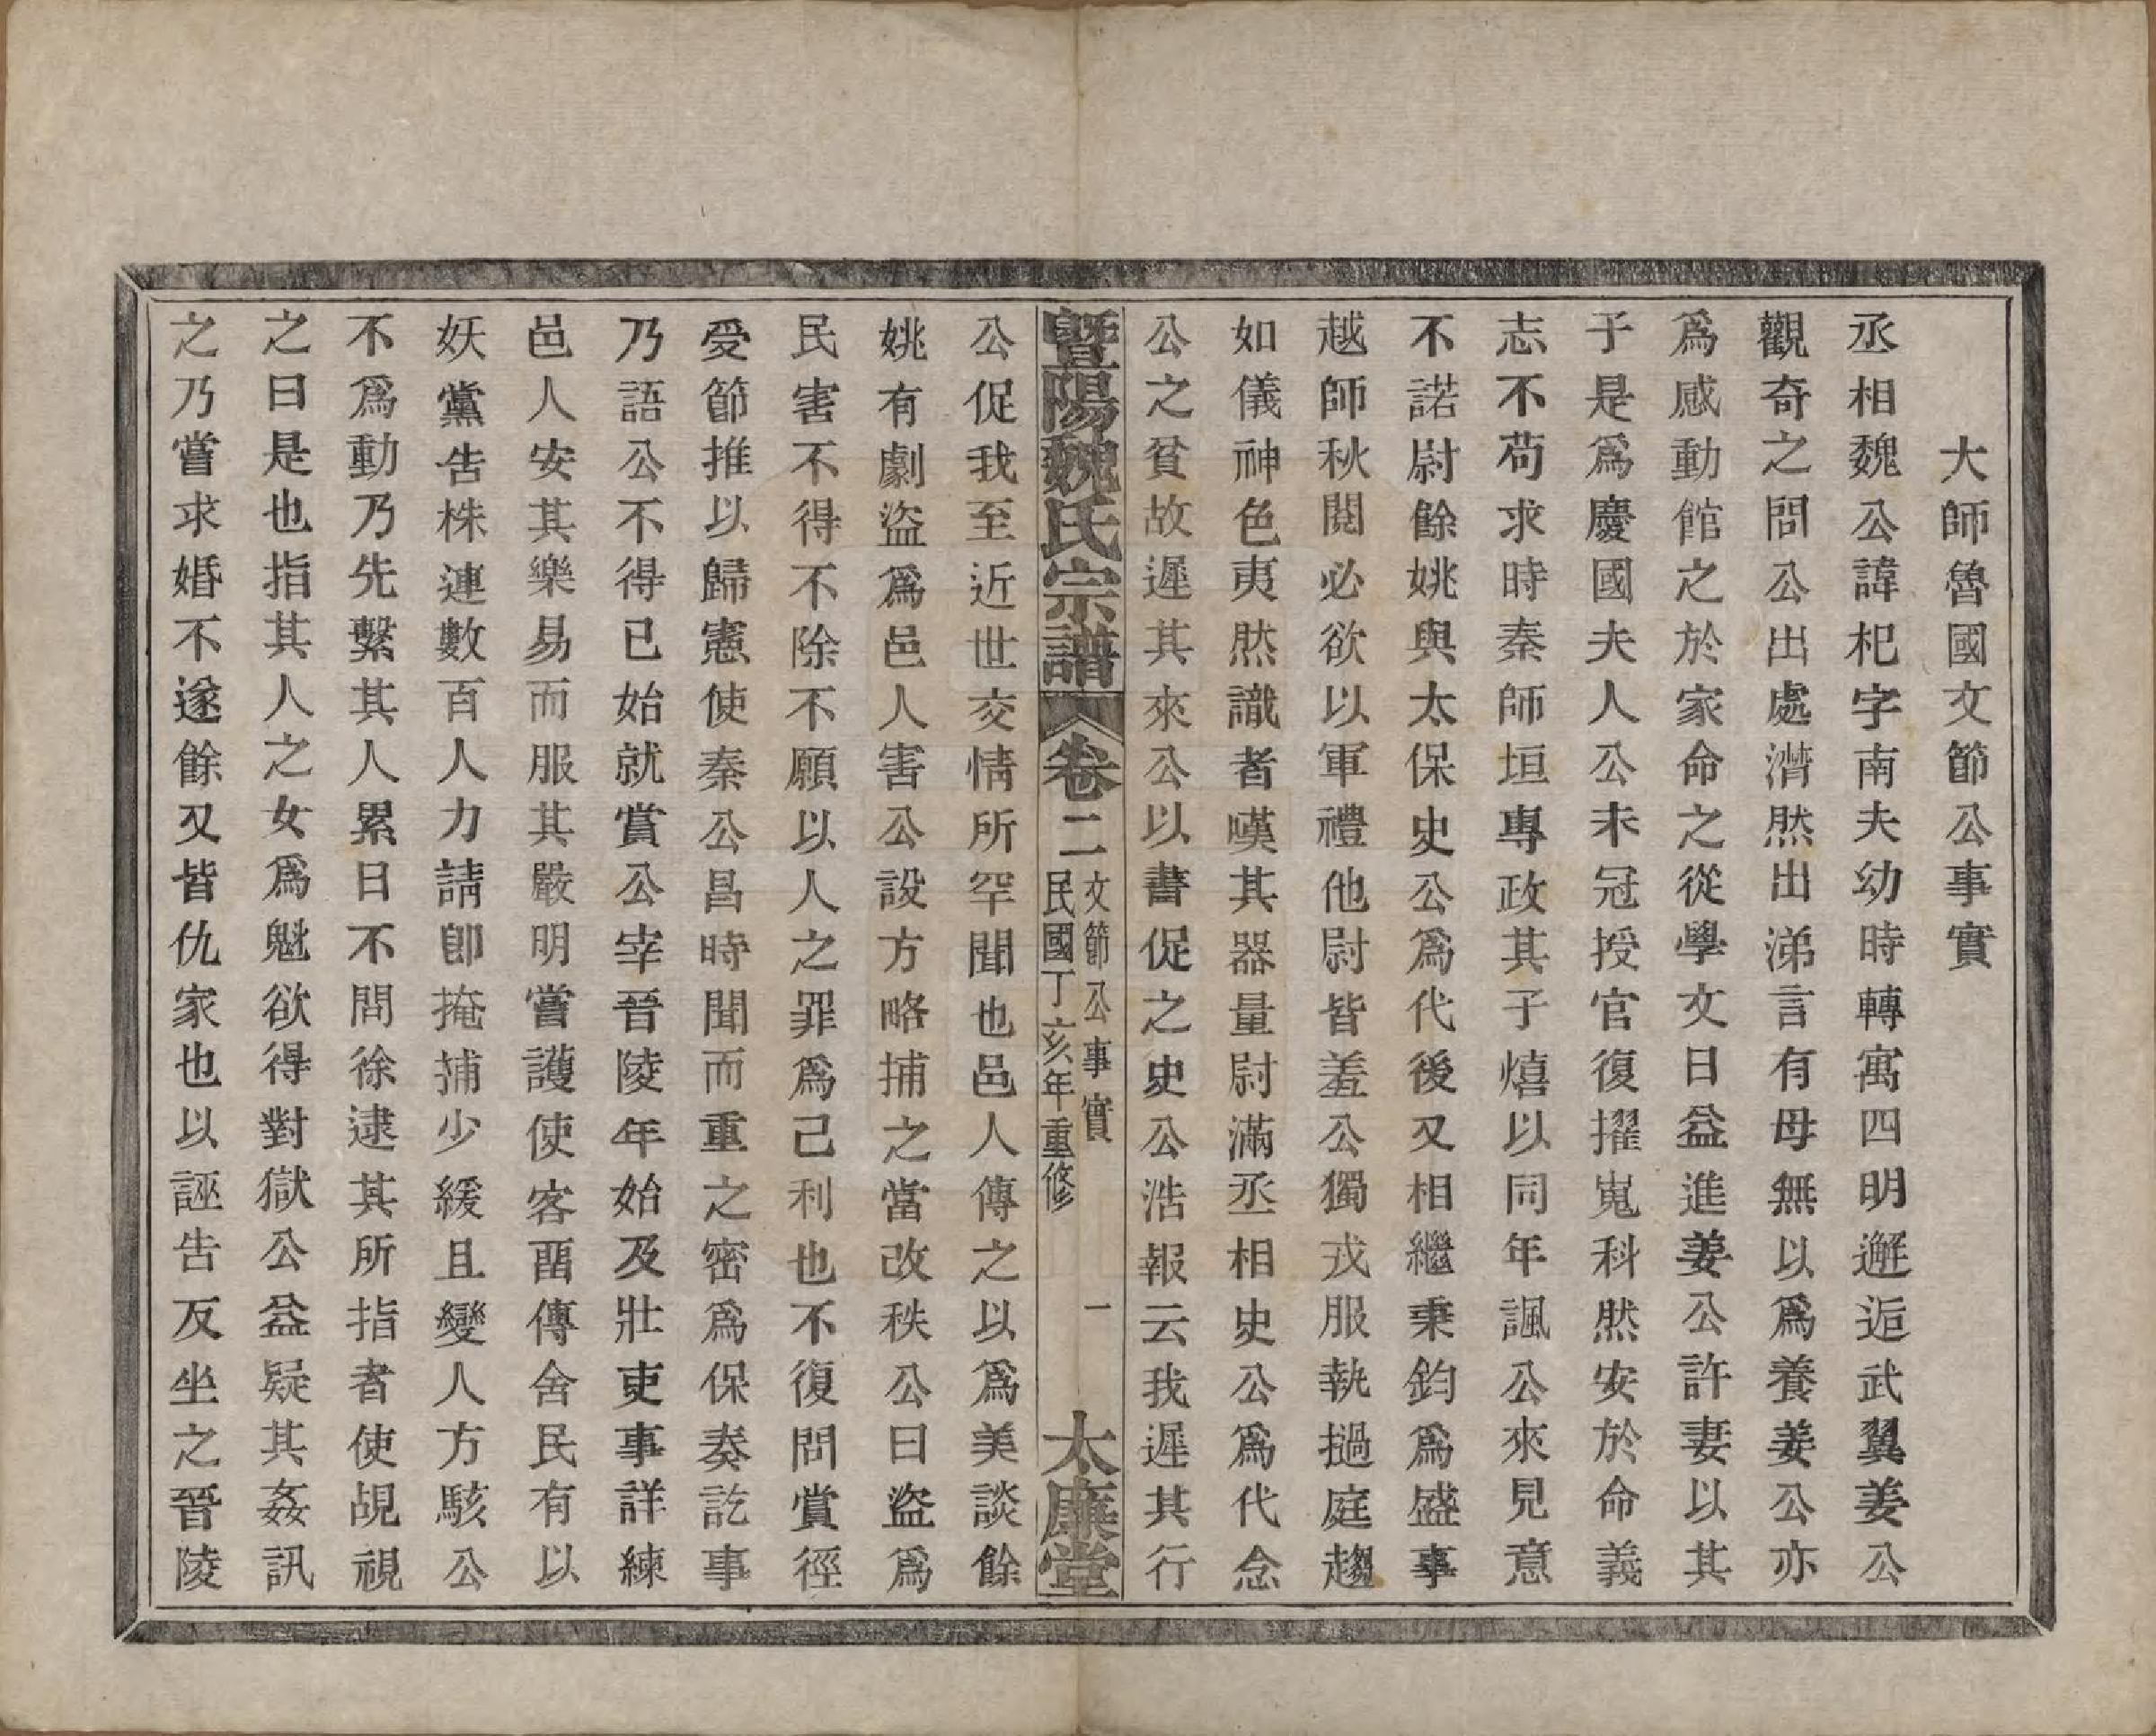 大師魯國文節公事實
丞相魏公諱杞字南夫幼時轉寓四明邂逅武翼姜公
觀奇之問公出處潸然出涕言有母無以爲養姜公亦
爲感動館之於家命之從學文日益進姜公許妻以其
子是爲慶國夫人公未冠授官復擢嵬科然安於命義
志不苟求時秦師垣專政其子熺以同年諷公來見意
不諾尉餘姚與太保史公爲代後又相繼秉鈞爲盛事
越師秋閱必欲以軍禮他尉皆羞公獨戎服執撾庭趨
如儀神色夷然識者嘆其器量尉滿丞相史公爲代念
公之貧故遲其來公以書促之史公浩報云我遲其行
暨陽魏氏宗譜 卷二 文節公事實 民國丁亥年重修 一 太廉堂
公促我至近世交情所罕聞也邑人傳之以爲美談餘
姚有劇盜爲邑人害公設方略捕之當改秩公曰盜爲
民害不得不除不願以人之罪爲己利也不復問賞徑
受節推以歸憲使秦公昌時聞而重之密爲保奏訖事
乃語公不得已始就賞公宰晉陵年始及壯吏事詳練
邑人安其樂易而服其嚴明嘗護使客畱傳舍民有以
妖黨告株連數百人力請卽掩捕少緩且變人方駭公
不爲動乃先繫其人累日不問徐逮其所指者使覘視
之曰是也指其人之女爲魁欲得對獄公益疑其姦訊
之乃嘗求婚不遂餘又皆仇家也以誣告反坐之晉陵